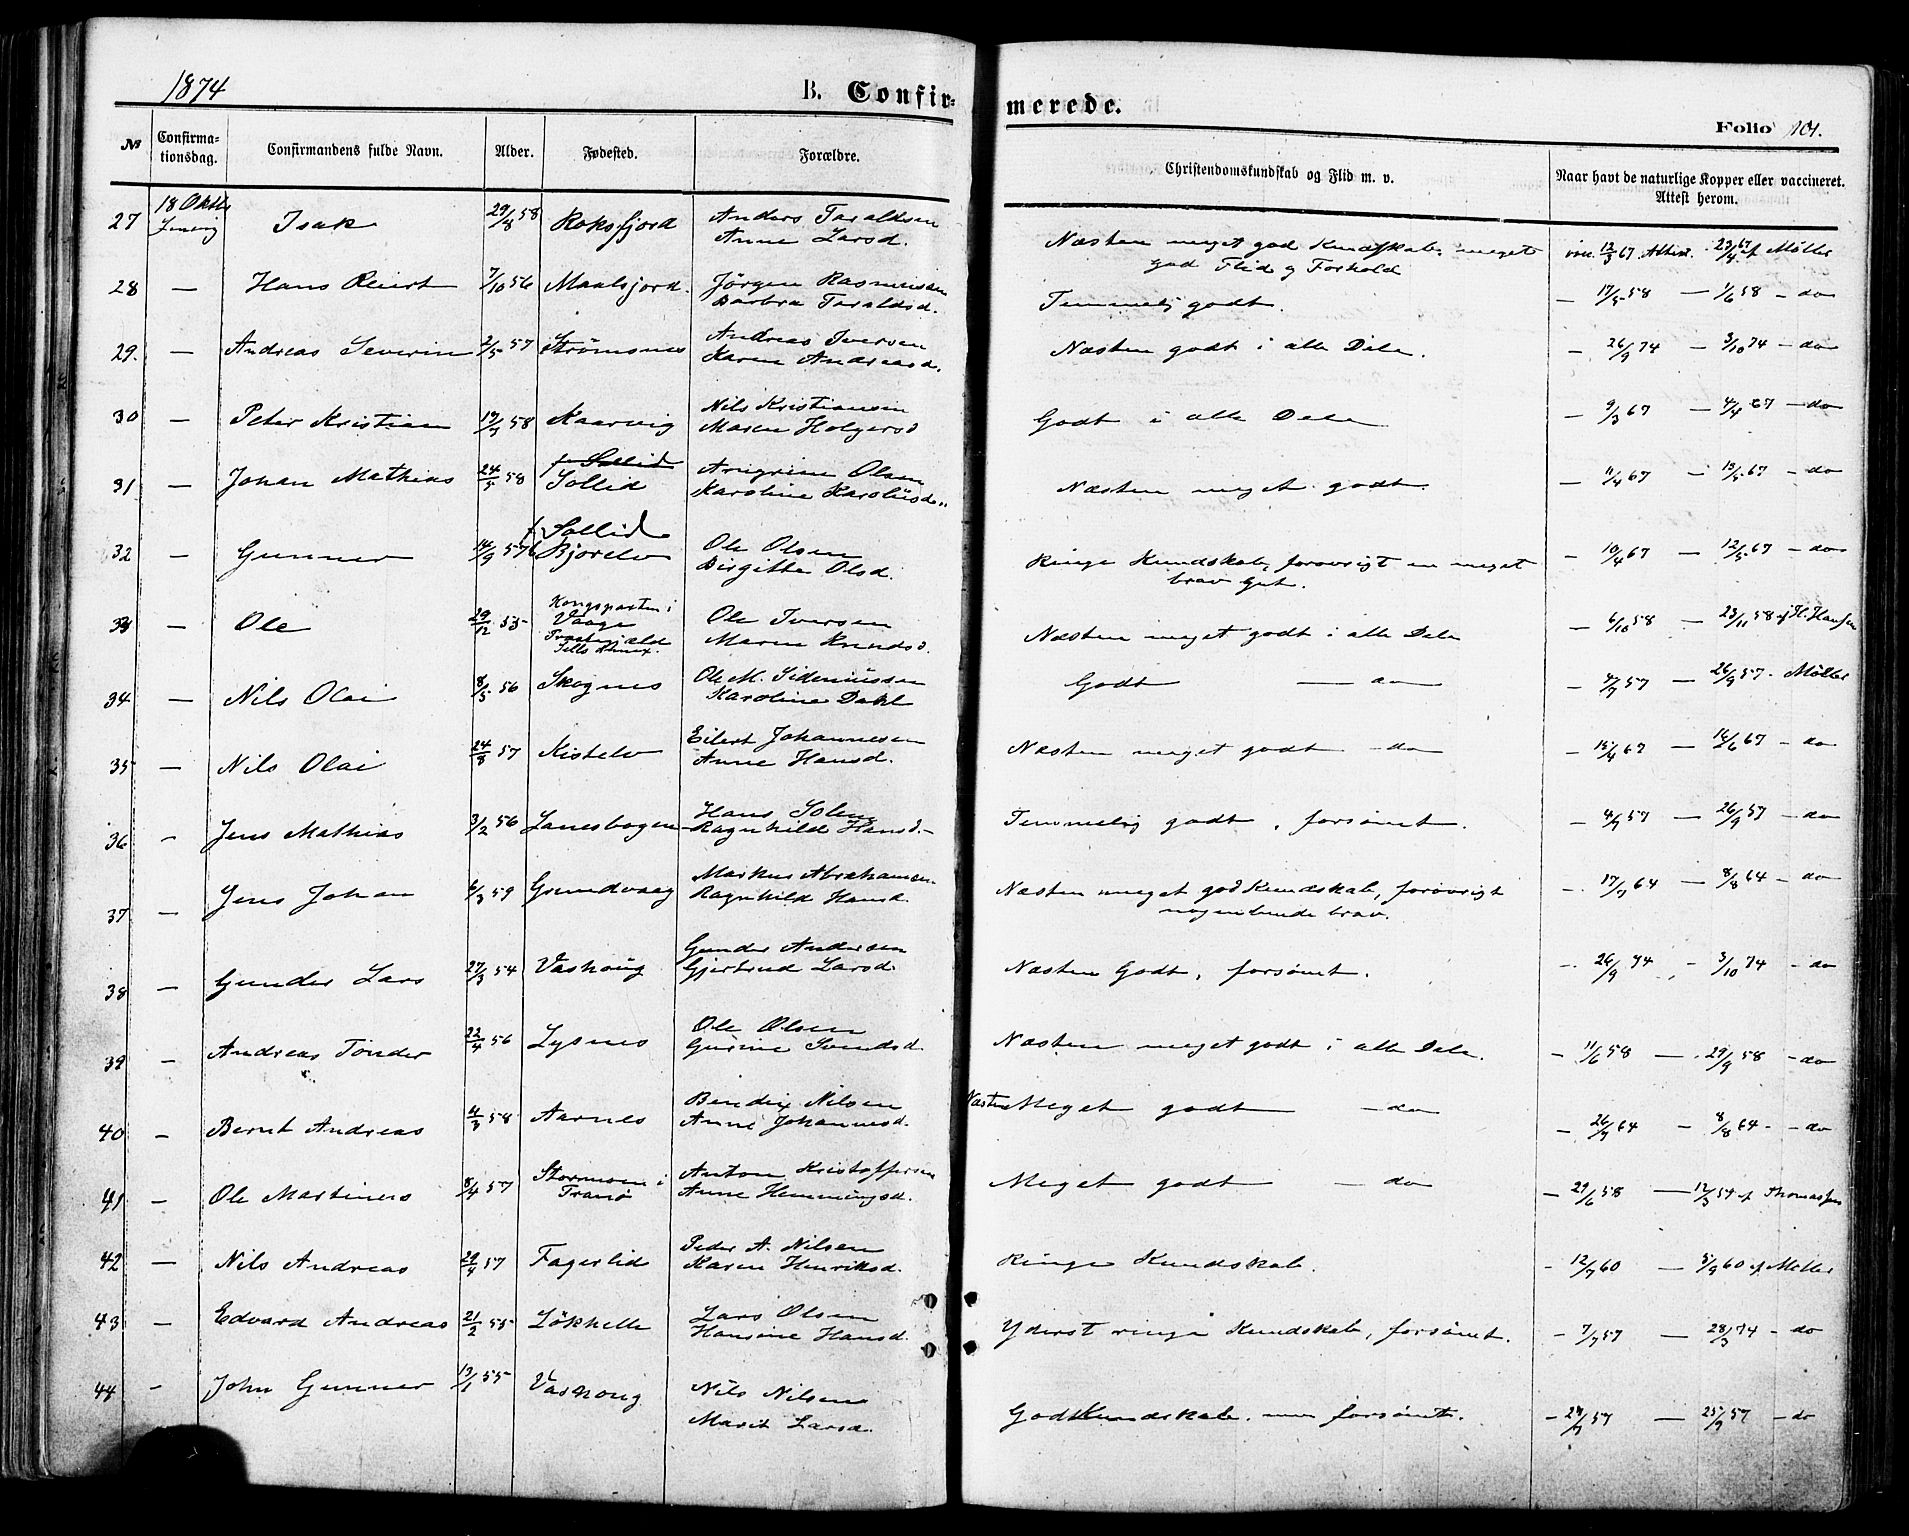 1874 B. Confirmerede. Folio 101.
№ Confirmationsdag. Confirmandens fulde Navn. Alder. Fødested. Forældre. Christendomskundskab og Flid m. v. Naar havt de naturlige Kopper eller vaccineret. Attest herom.
27 18 Oktb Isak 29/8 58 Roksfjord Anders Taraldsen Næsten meget god Kundskab, meget vac. 12/3 67. Attest. 29/4 67 af Møller
Anne Larsd. god Flid og Forhold
28 — Hans Reiert 7/10 56 Maalsjord. Jørgen Rasmussen Temmelig godt. — 17/5 58 — 1/6 58 — do
Barbra Taraldsd.
29. — Andreas Severin 2/5 57 Strømsnes Andreas Iversen Næsten godt i alle Dele. — 26/9 74 — 3/10 74 — do
Karen Andreasd.
30 — Peter Kristian 19/7 58 Kaarvig Nils Kristiansen Godt i alle Dele — 9/3 67 — 4/4 67 — do
Maren Holgersd
31 — Johan Mathias 24/5 58 Sollid Arngrim Olsen Næsten meget godt. — 11/4 67 — 13/5 67 — do
Karoline Karoliusd.
32 — Gunner 14/9 57 f. Sollid Bjorelv Ole Olsen Ringe Kundskab, forøvrigt en meget — 10/4 67 — 12/5 67 — do
Birgitte Olsd. brav Gut.
33 — Ole 29/12 55 Kongsparten i Vaage Ole Iversen Næsten meget godt i alle Dele — 6/10 58 — 23/11 58 af H. Hansen
Maren Knudsd.
34 — Nils Olai 8/5 56 Skognes Ole M. Sideniussen Godt — do — 4/7 57 — 26/9 57. Møller
Karoline Dahl
35 — Nils Olai 24/8 57 Kistelv Eilert Johannesen Næsten meget godt — do — 15/4 67 — 14/6 67 — do
Anne Hansd.
36 — Jens Mathias 3/2 56 Lanesbogen Hans Solem Temmelig godt, forsømt. — 4/7 57 — 26/9 57 — do
Ragnhild Hansd.
37 — Jens Johan 6/3 59 Grundvaag Markus Abrahamsen Næsten meget god Kundskab, forøvrigt — 17/7 64 — 8/8 64 — do
Ragnhild Hansd. nogenlunde brav.
38 — Gunder Lars 27/3 54 Vashoug Gunder Andersen Næsten Godt, forsømt. — 26/9 74 — 3/10 74 — do
Gjertrud Larsd.
39 — Andreas Tønder 22/4 56 Lysnes Ole Olsen Næsten meget godt i alle Dele. — 11/6 58 — 29/9 58 — do
Gurine Svendsd.
40 — Bernt Andreas 4/3 58 Aarnes Bendix Nilsen Næsten Meget godt — do — 26/7 64 — 8/8 64 — do
Anne Johannesd.
41 — Ole Martinus 8/4 57 Stormoen i Tranø Anton Kristoffersen Meget godt — do — 29/6 58 — 12/3 59 af Thomassen
Anne Hemmingsd.
42 — Nils Andreas 29/4 57 Fagerlid Peder A. Nilsen Ringe Kundskab. — 12/7 60 — 5/9 60 af Møller
Karen Henriksd.
43 — Edvard Andreas 21/2 55 Løkhelle Lars Olsen Yderst ringe Kundskab, forsømt. — 7/7 57 — 28/3 74 — do
Hansine Hansd.
44 — John Gunner 13/1 55 Vashoug Nils Nilsen God Kundskab, men forsømt. — 24/7 57 — 25/9 57 — do
Marit Larsd.